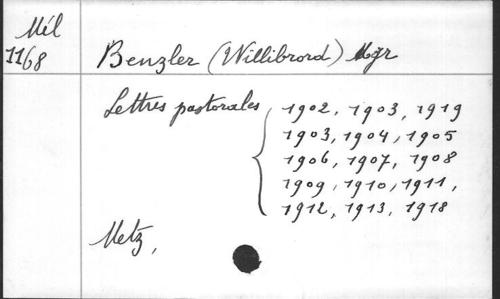 Mél
1168
Benzler (Willibrord) Mgr
Lettres pastorales { 1902, 1903, 1919
1903, 1904, 1905
1906, 1907, 1908
1909, 1910, 1911,
1912, 1913, 1918
Metz,